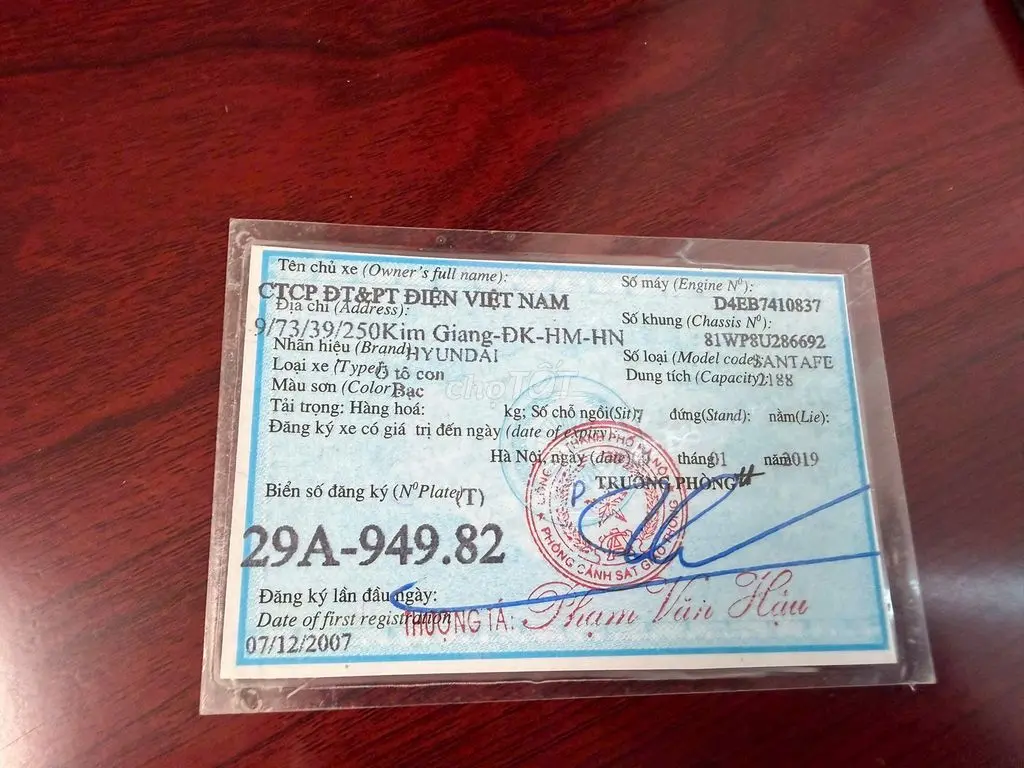 Tên chủ xe (Owner's full name):
CTCP ĐT&PT ĐIỆN VIỆT NAM
Địa chỉ (Address):
9/73/39/250Kim Giang-ĐK-HM-HN
Nhãn hiệu (Brand) HYUNDAI
Loại xe (Type) Ô tô con
Màu sơn (Color) Bạc
Số máy (Engine Nº):
D4EB7410837
Số khung (Chassis Nº):
81WP8U286692
Số loại (Model code) SANTAFE
Dung tích (Capacity): 2188
Tải trọng: Hàng hoá: kg; Số chỗ ngồi(Sit) 7 đứng(Stand): nằm(Lie):
Đăng ký xe có giá trị đến ngày (date of expiry)
Hà Nội, ngày (date) tháng 01 năm 2019
TRƯỞNG PHÒNG
Biển số đăng ký (NºPlate) (T)
29A-949.82
Đăng ký lần đầu ngày:
Date of first registration
07/12/2007
THƯỢNG TÁ: Phạm Văn Hậu
PHÒNG CẢNH SÁT GIAO THÔNG
THÀNH PHỐ HÀ NỘI
choTỐT